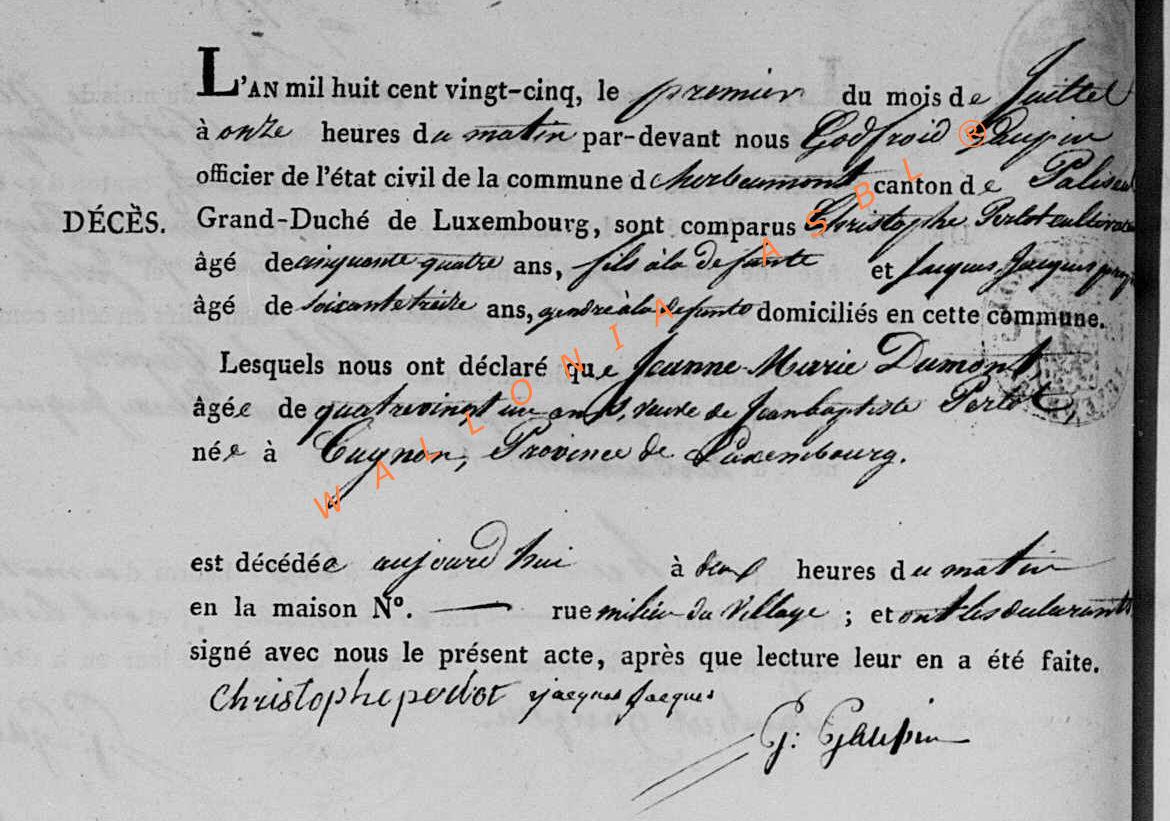 L'AN mil huit cent vingt-cinq, le premier du mois de Juillet
à onze heures du matin par-devant nous Godfroid
officier de l'état civil de la commune d'herbeumont canton de Paliseul
DÉCÈS. Grand-Duché de Luxembourg, sont comparus Christophe Perlot cultivateur
âgé de cinquante quatre ans, fils à la defunte et Jacques Jacques
âgé de soixante treize ans, gendre à la defunte domiciliés en cette commune.
Lesquels nous ont déclaré que Jeanne Marie Dumont
âgée de quatrevingt un ans, veuve de Jeanbaptiste Perlot
née à Cugnon, Province de Luxembourg.
est décédée aujourd'hui à deux heures du matin
en la maison N°. — rue milieu du Village ; et ont les declarants
signé avec nous le présent acte, après que lecture leur en a été faite.
Christophe perlot jacques jacques
G:
WALLONIA ASBL ®